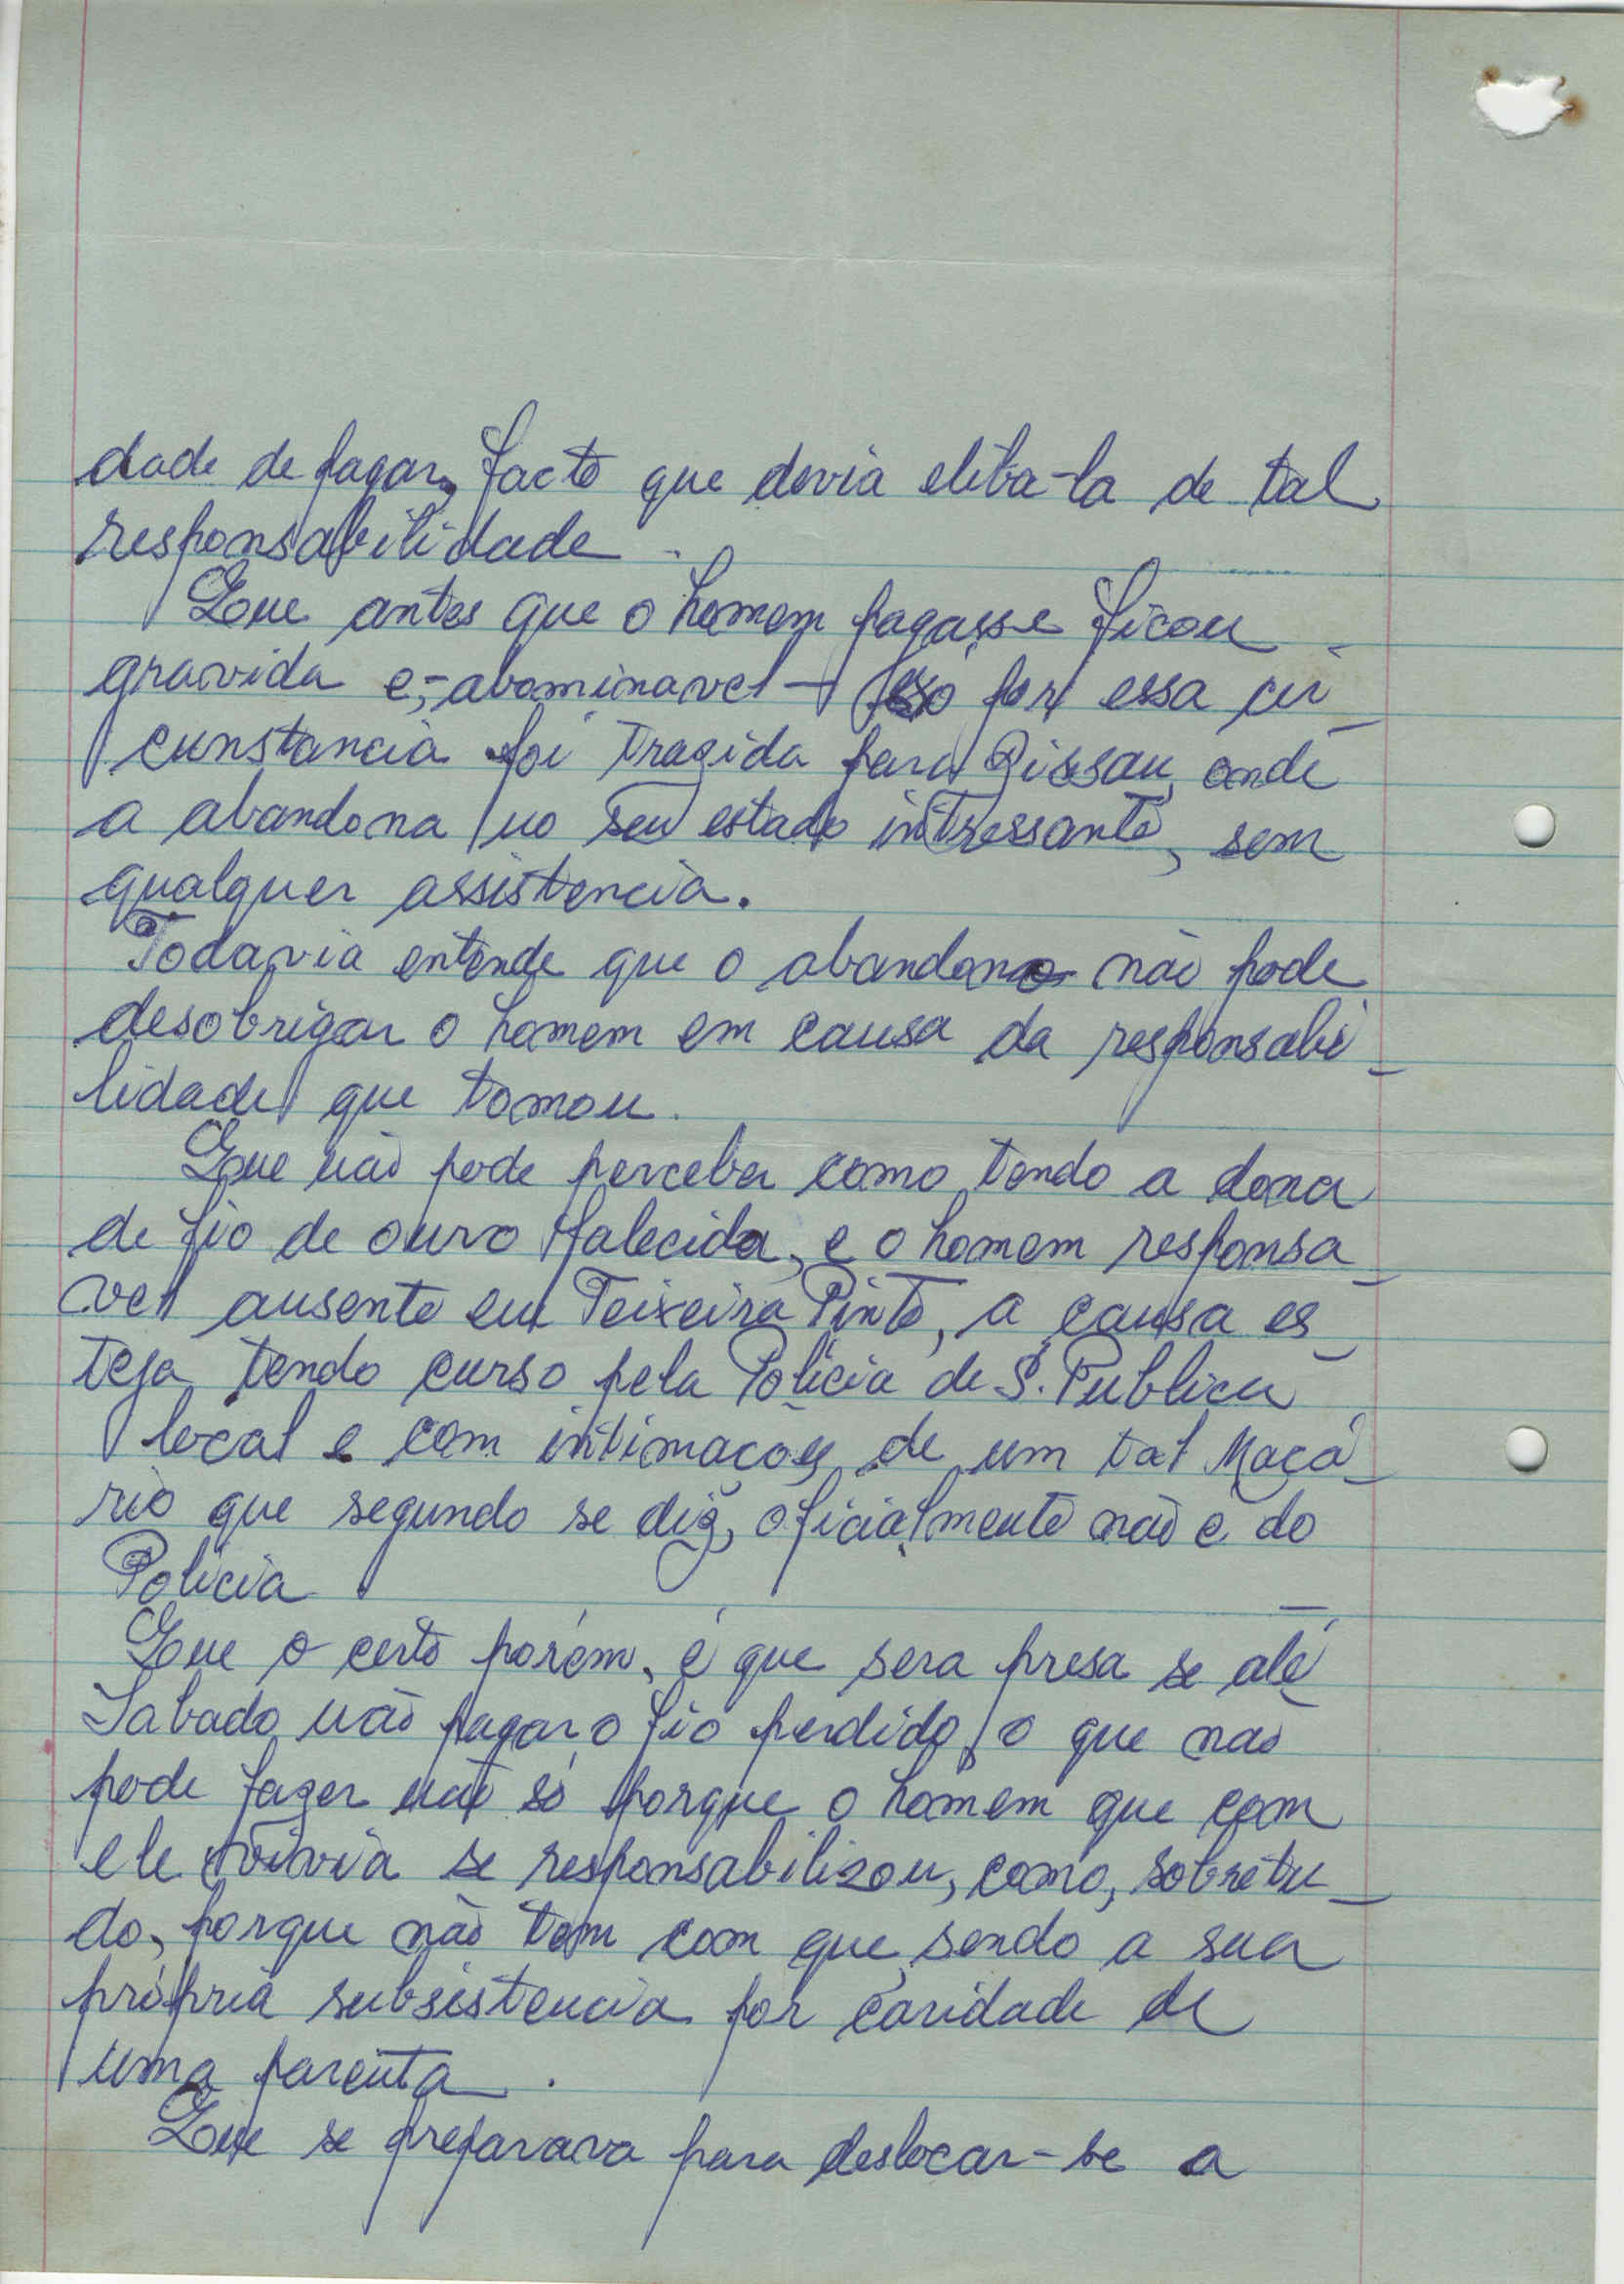 dade de pagar, facto que devia eliba-la de tal
responsabilidade.
Que antes que o homem pagasse ficou
gravida e,-abominavel- só por essa cir-
cunstancia foi trazida para Bissau, onde
a abandona no seu estado intressante, sem
qualquer assistencia.
Todavia entende que o abandono não pode
desobrigar o homem em causa da responsabi-
lidade que tomou.
Que não pode perceber como tendo a dona
de fio de ouro falecida, e o homem responsa-
vel ausente em Teixeira Pinto, a causa es-
teja tendo curso pela Policia de S. Publica
local e com intimações de um tal Macá-
rio que segundo se diz, oficialmente não é do
Policia
Que o certo porém, é que sera presa se até
Sabado não pagar o fio perdido, o que não
pode fazer não só porque o homem que com
ele vivia se responsabilizou, como, sobretu-
do, porque não tem com que, sendo a sua
própria subsistencia por caridade de
uma parenta.
Que se preparava para deslocar-se a